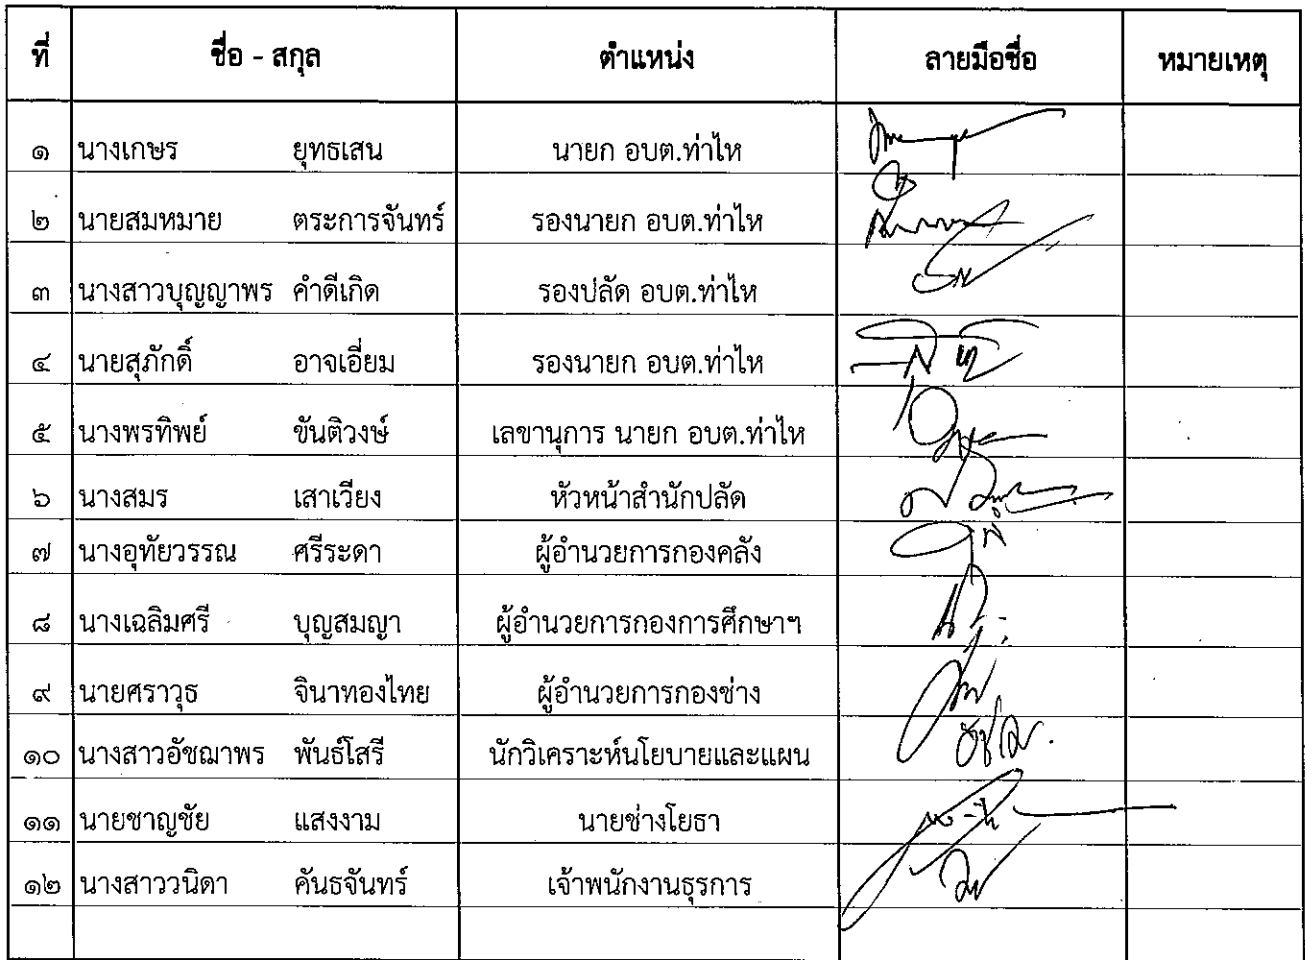 ที่ ชื่อ - สกุล ตำแหน่ง ลายมือชื่อ หมายเหตุ
๑ นางเกษร ยุทธเสน นายก อบต.ท่าไห
๒ นายสมหมาย ตระการจันทร์ รองนายก อบต.ท่าไห
๓ นางสาวบุญญาพร คำดีเกิด รองปลัด อบต.ท่าไห
๔ นายสุภักดิ์ อาจเอี่ยม รองนายก อบต.ท่าไห
๕ นางพรทิพย์ ขันติวงษ์ เลขานุการ นายก อบต.ท่าไห
๖ นางสมร เสาเวียง หัวหน้าสำนักปลัด
๗ นางอุทัยวรรณ ศรีระดา ผู้อำนวยการกองคลัง
๘ นางเฉลิมศรี บุญสมญา ผู้อำนวยการกองการศึกษาฯ
๙ นายศราวุธ จินาทองไทย ผู้อำนวยการกองช่าง
๑๐ นางสาวอัชฌาพร พันธ์โสรี นักวิเคราะห์นโยบายและแผน
๑๑ นายชาญชัย แสงงาม นายช่างโยธา
๑๒ นางสาววนิดา คันธจันทร์ เจ้าพนักงานธุรการ